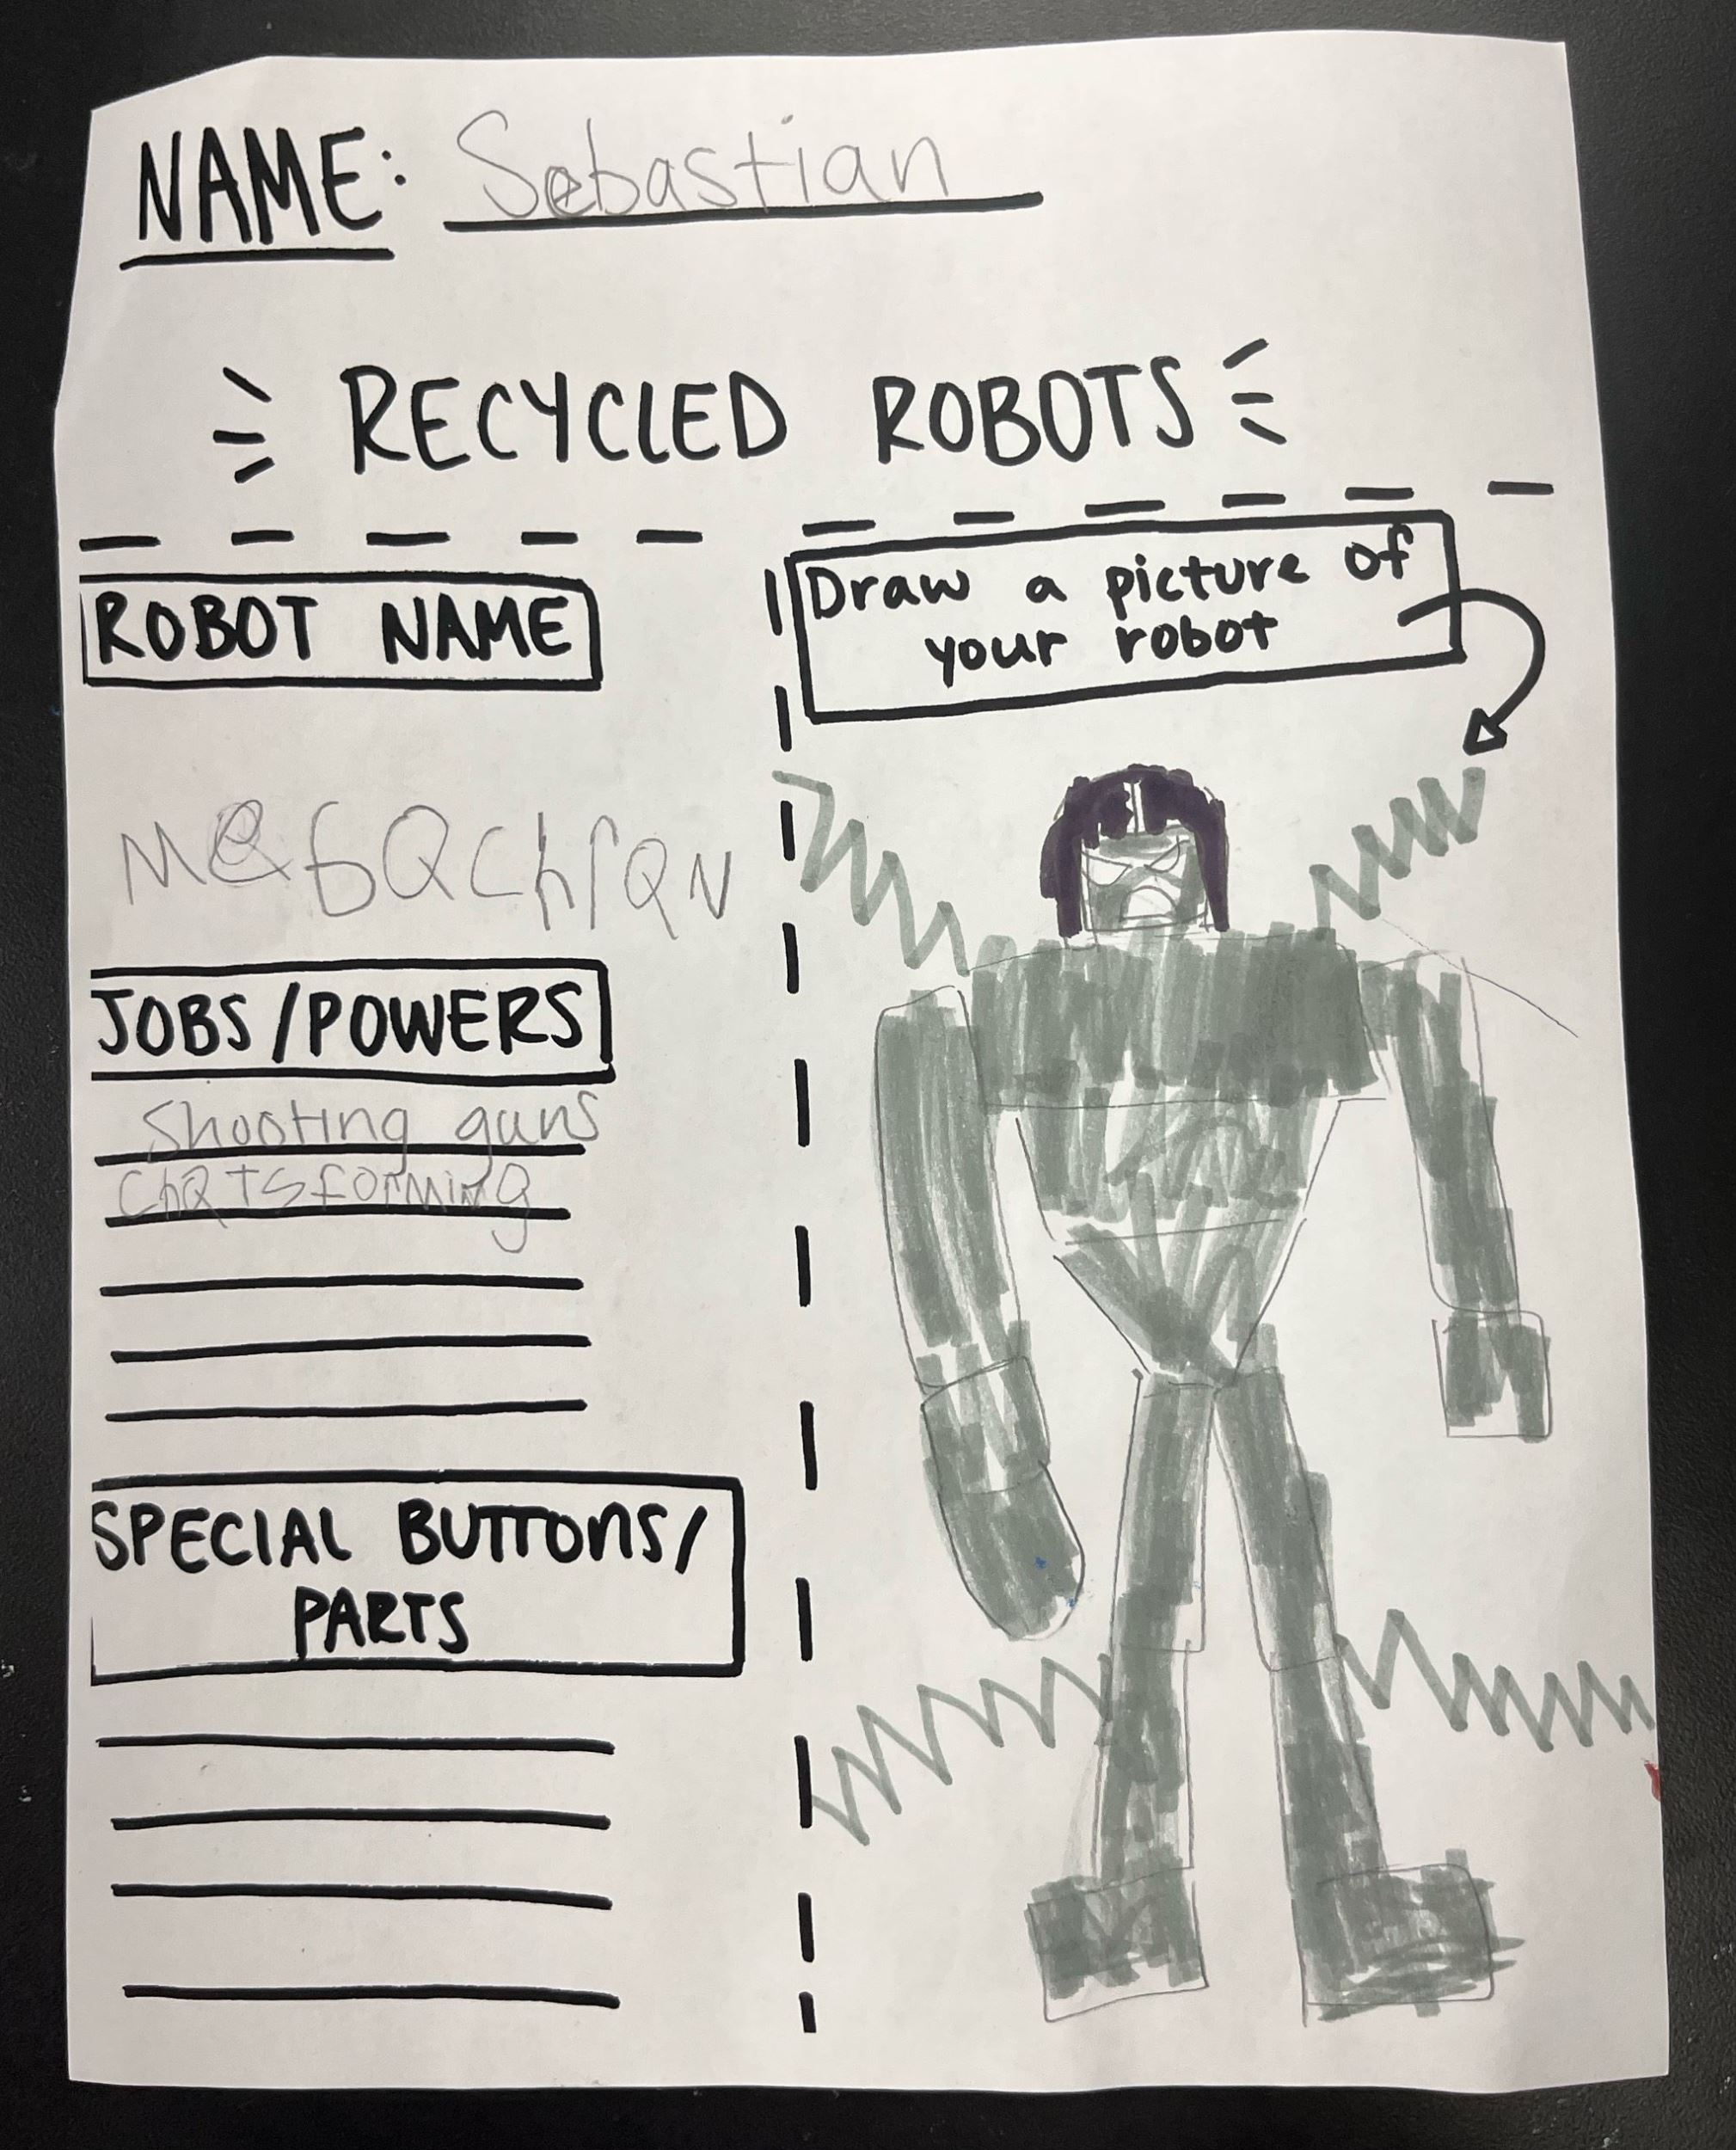 NAME: Sebastian
RECYCLED ROBOTS
ROBOT NAME
MeGQChrQN
JOBS/POWERS
Shooting guns
ChQTSforming
SPECIAL BUTTONS/
PARTS
Draw a picture of
your robot